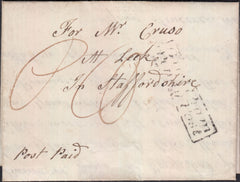 For Mr. Cruso
At Leek
In Staffordshire
Post Paid